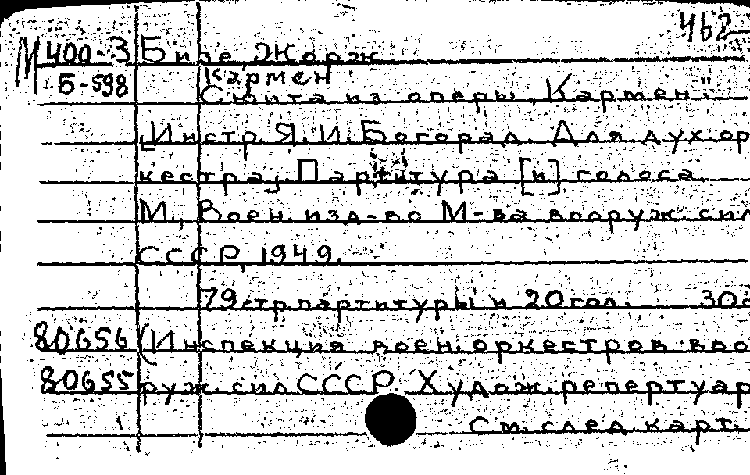 462
М 400-3 Бизе, Жорж
Б-598 Кармен
Сюита из оперы „Кармен"
[Инстр. Я. И. Богорад. Для дух. ор
кестра]. Партитура [и] голоса.
М., Воен. изд-во М-ва вооруж. сил
СССР, 1949.
79 стр. партитуры и 20 гол. 30
80656 (Инспекция воен. оркестров воо
80655 руж. сил СССР. Худож. репертуар
См. след. карт.